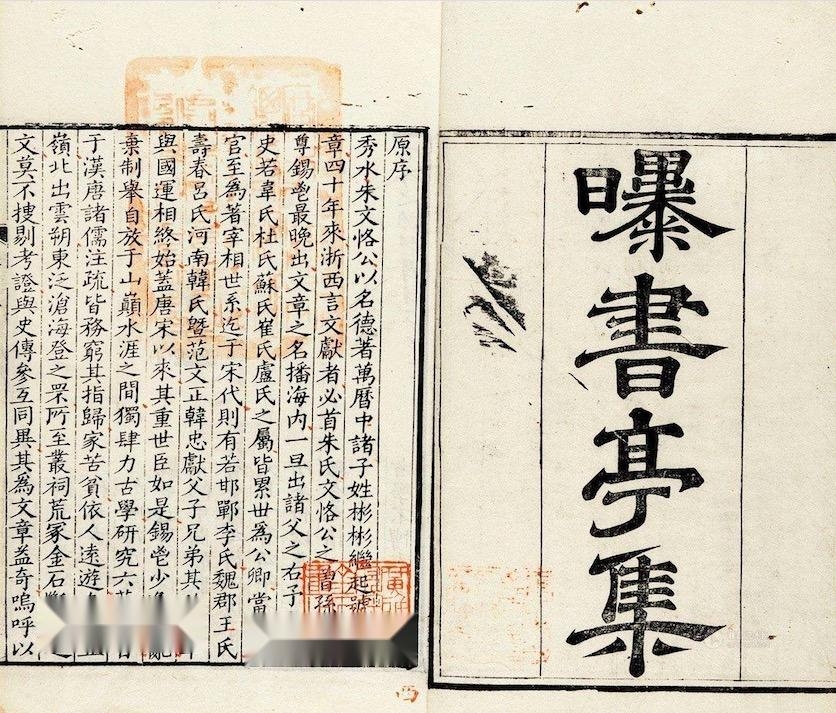 曝書亭集
原序
秀水朱文恪公以名德著萬曆中諸子姓彬彬繼起號
章四十年來浙西言文獻者必首朱氏文恪公之曾孫
尊錫鬯最晚出文章之名播海內一旦出諸父之右予
史若韋氏杜氏蘇氏崔氏盧氏之屬皆累世爲公卿當
官至爲著宰相世系迄于宋代則有若邯鄲李氏魏郡王氏
壽春呂氏河南韓氏暨范文正韓忠獻父子兄弟其
與國運相終始蓋唐宋以來其重世臣如是錫鬯少
棄制舉自放于山巔水涯之間獨肆力古學研究六
于漢唐諸儒注疏皆務窮其指歸家苦貧依人遠遊
嶺北出雲朔東泛滄海登之罘所至叢祠荒冢金石
文莫不搜剔考證與史傳參互同異其爲文章益奇嗚呼以